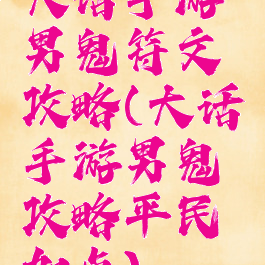 大话手游
男鬼符文
攻略(大话
手游男鬼
攻略平民
加点)